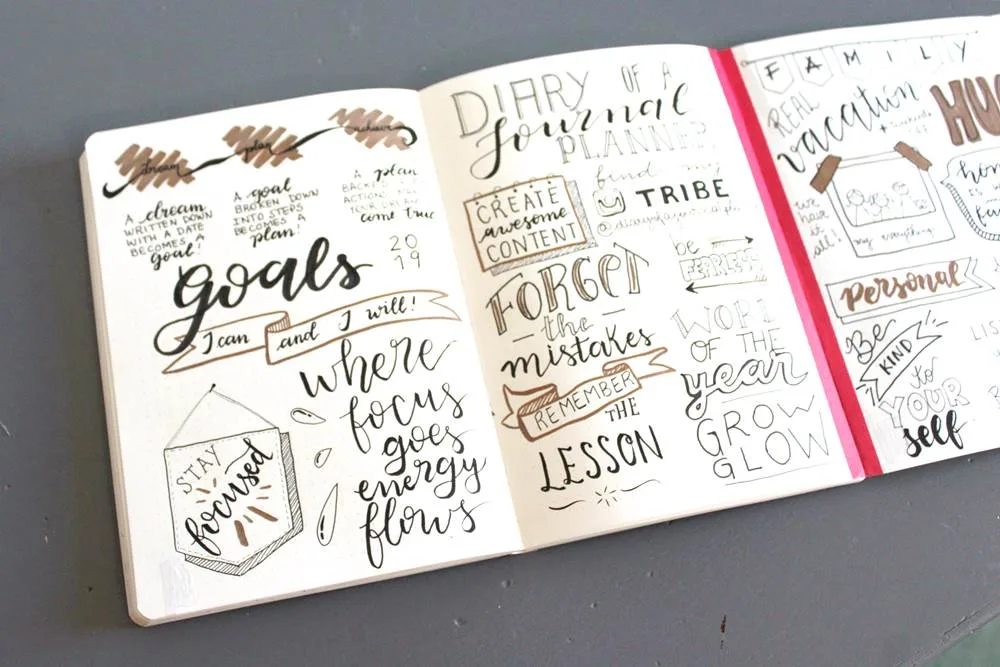 dream
plan
achieve
A dream
WRITTEN DOWN
WITH A DATE
BECOMES A
goal
A goal
BROKEN DOWN
INTO STEPS
BECOMES A
plan!
A plan
BACKED
ACTION
come true
goals
20
19
I can and I will!
where
focus
goes
energy
flows
STAY
focused
DIARY OF A
Journal
PLANNER
CREATE
awesome
CONTENT
find my
TRIBE
FORGET
the
mistakes
REMEMBER
THE
LESSON
be
FEARLESS
WORD
OF THE
year
GROW
GLOW
FAMILY
REAL
vacation
HUG
we
have
it
all!
my everything
Personal
Be
KIND
to
YOUR
self